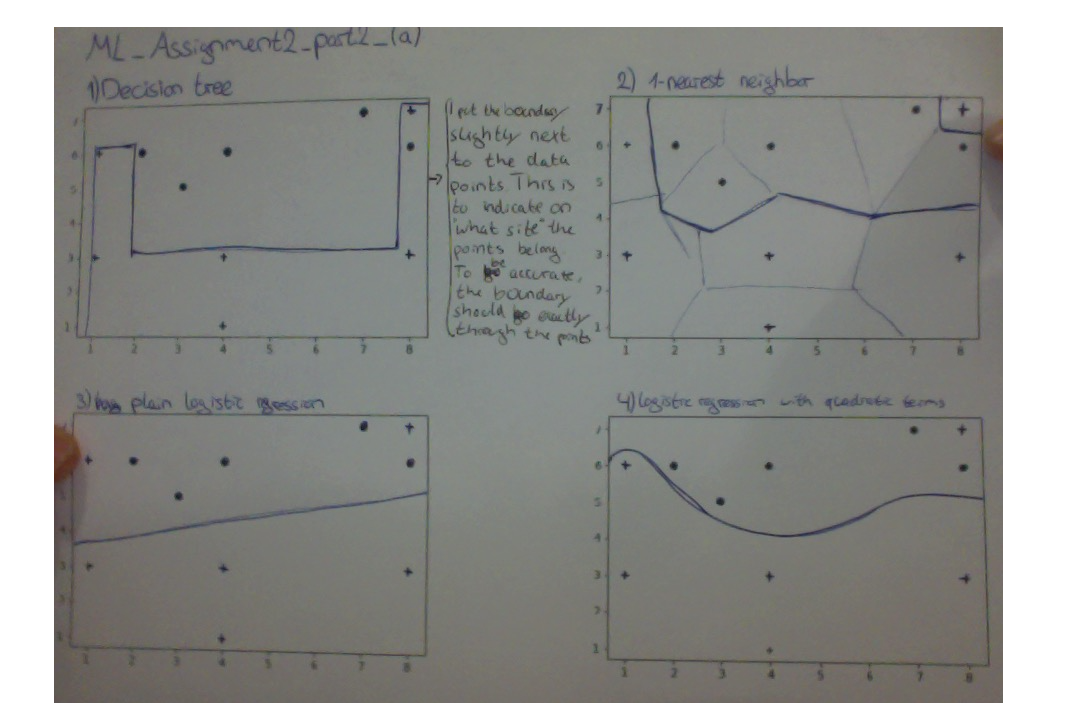 ML_Assignment2_part2_(a)
1) Decision tree
7
6
5
4
3
2
1
1 2 3 4 5 6 7 8
I put the boundary
slightly next
to the data
points. This is
to indicate on
"what site" the
points belong.
To be accurate,
the boundary
should go exactly
through the points
2) 1-nearest neighbor
7
6
5
4
3
2
1
1 2 3 4 5 6 7 8
3) plain logistic regression
5
4
3
2
1
1 2 3 4 5 6 7 8
4) logistic regression with quadratic terms
7
6
5
4
3
2
1
1 2 3 4 5 6 7 8